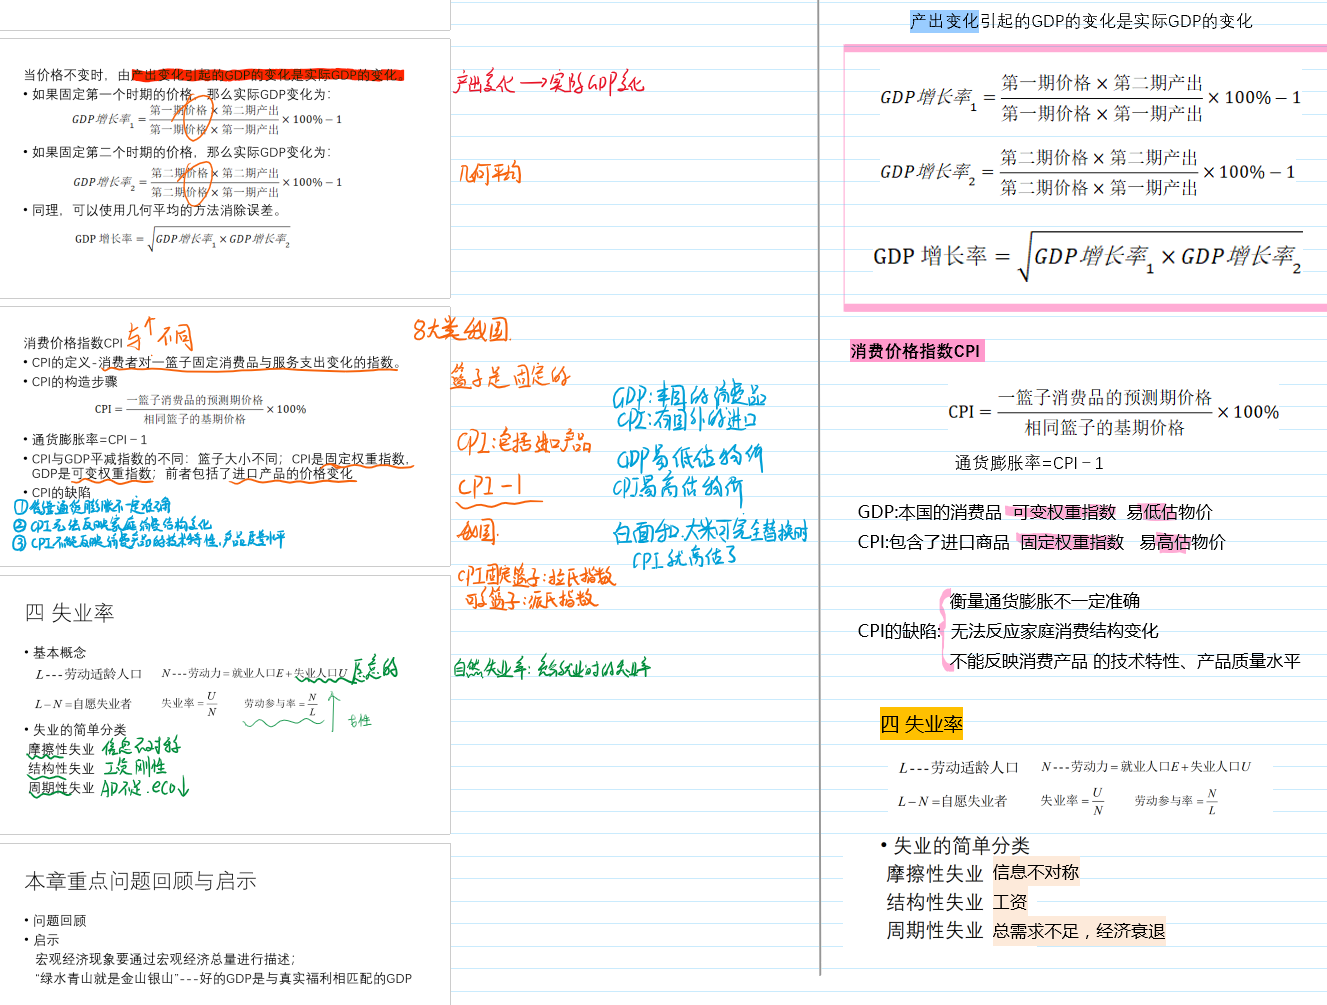 当价格不变时，由产出变化引起的GDP的变化是实际GDP的变化。
• 如果固定第一个时期的价格，那么实际GDP变化为：
GDP增长率₁ = 第一期价格 × 第二期产出 / 第一期价格 × 第一期产出 × 100% − 1
• 如果固定第二个时期的价格，那么实际GDP变化为：
GDP增长率₂ = 第二期价格 × 第二期产出 / 第二期价格 × 第一期产出 × 100% − 1
• 同理，可以使用几何平均的方法消除误差。
GDP 增长率 = √(GDP增长率₁ × GDP增长率₂)
产出变化 → 实际GDP变化
几何平均
消费价格指数CPI
与 不同
• CPI的定义-消费者对一篮子固定消费品与服务支出变化的指数。
• CPI的构造步骤
CPI = 一篮子消费品的预测期价格 / 相同篮子的基期价格 × 100%
• 通货膨胀率=CPI − 1
• CPI与GDP平减指数的不同：篮子大小不同；CPI是固定权重指数，
GDP是可变权重指数；前者包括了进口产品的价格变化
• CPI的缺陷
①衡量通货膨胀不一定准确
②CPI无法反映家庭消费结构变化
③CPI不能反映消费产品的技术特性、产品质量水平
8大类 我国
篮子是固定的
CPI：包括进口产品
CPI-1
GDP：本国的消费品
CPI：有国外的进口
GDP易低估物价
CPI易高估物价
白面和大米可完全替换时
CPI就高估了
CPI固定篮子：拉氏指数
可变篮子：派氏指数
四 失业率
• 基本概念
L---劳动适龄人口 N---劳动力=就业人口E+失业人口U
L−N=自愿失业者 失业率=U/N 劳动参与率=N/L
女性
• 失业的简单分类
摩擦性失业 信息不对称
结构性失业 工资刚性
周期性失业 AD不足.eco↓
自然失业率：充分就业时的失业率
本章重点问题回顾与启示
• 问题回顾
• 启示
宏观经济现象要通过宏观经济总量进行描述；
“绿水青山就是金山银山”---好的GDP是与真实福利相匹配的GDP
产出变化引起的GDP的变化是实际GDP的变化
GDP增长率₁ = 第一期价格 × 第二期产出 / 第一期价格 × 第一期产出 × 100% − 1
GDP增长率₂ = 第二期价格 × 第二期产出 / 第二期价格 × 第一期产出 × 100% − 1
GDP 增长率 = √(GDP增长率₁ × GDP增长率₂)
消费价格指数CPI
CPI = 一篮子消费品的预测期价格 / 相同篮子的基期价格 × 100%
通货膨胀率=CPI − 1
GDP:本国的消费品 可变权重指数 易低估物价
CPI:包含了进口商品 固定权重指数 易高估物价
衡量通货膨胀不一定准确
CPI的缺陷: 无法反应家庭消费结构变化
不能反映消费产品 的技术特性、产品质量水平
四 失业率
L---劳动适龄人口 N---劳动力=就业人口E+失业人口U
L−N=自愿失业者 失业率=U/N 劳动参与率=N/L
• 失业的简单分类
摩擦性失业 信息不对称
结构性失业 工资
周期性失业 总需求不足，经济衰退